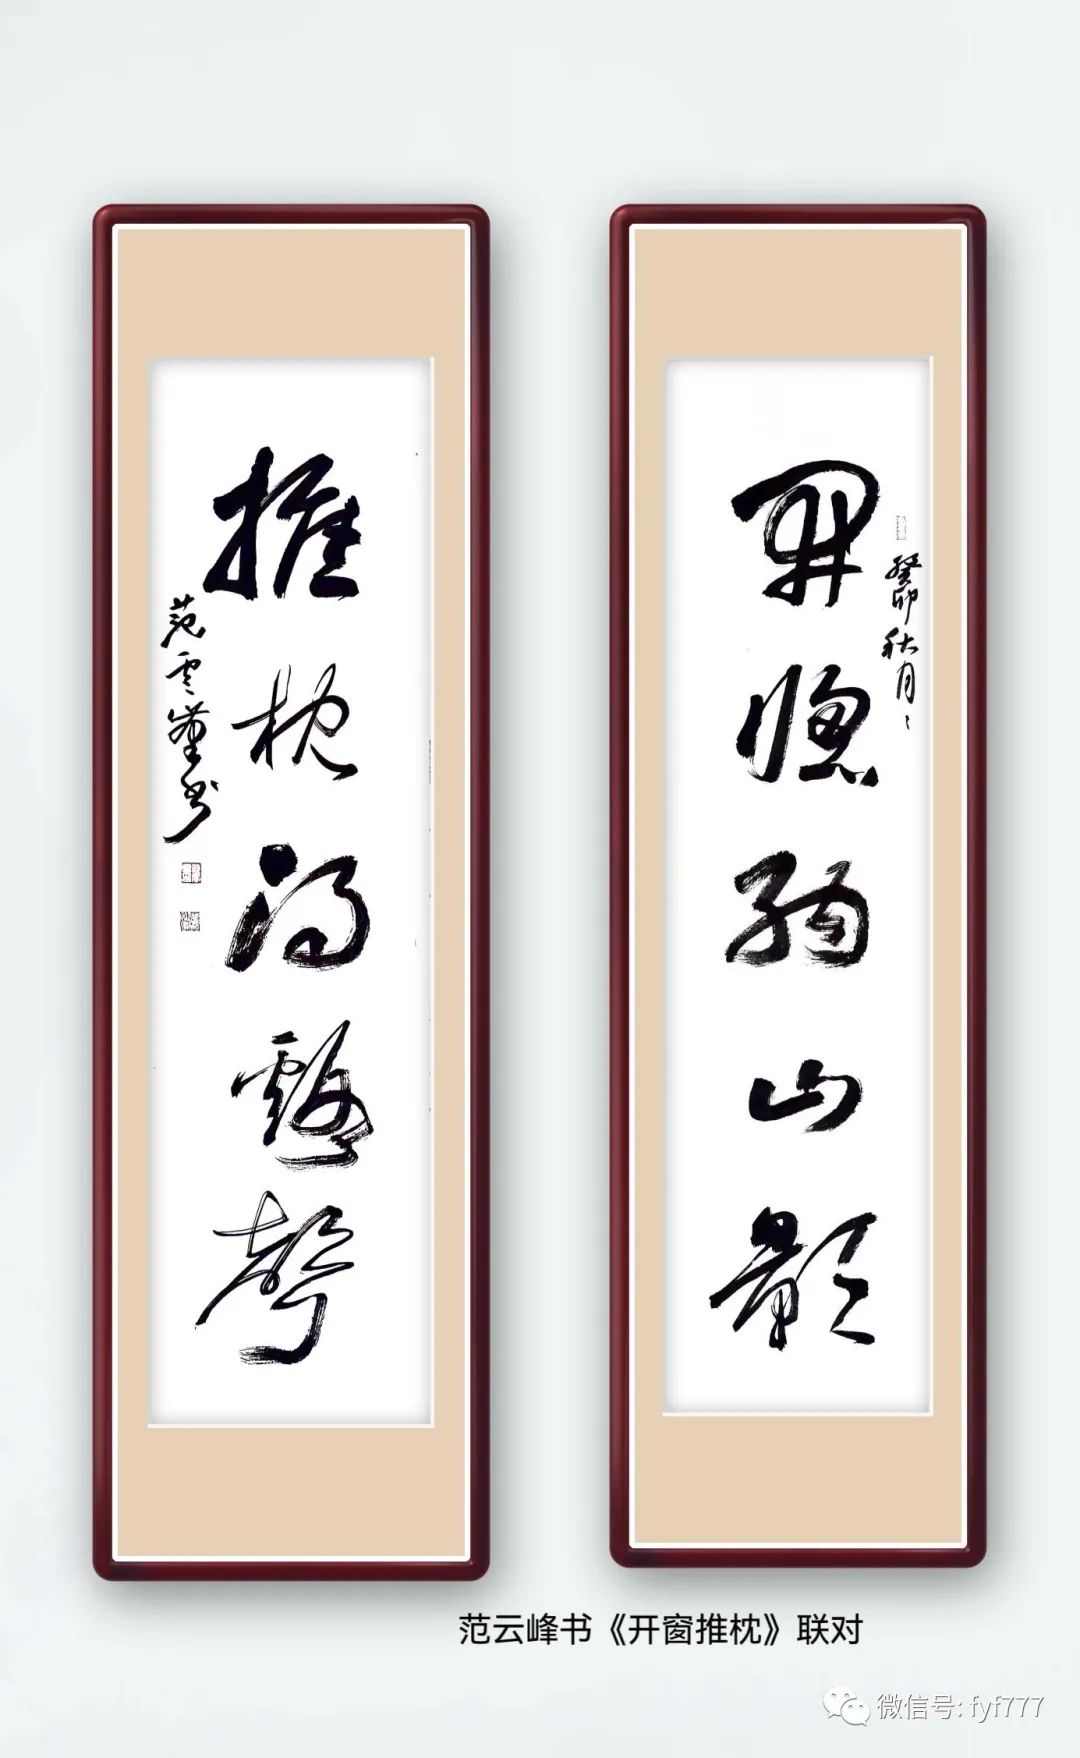 開牕納山影
癸卯秋月
推枕得谿聲
范雲峰書
范云峰书《开窗推枕》联对
微信号: fyf777